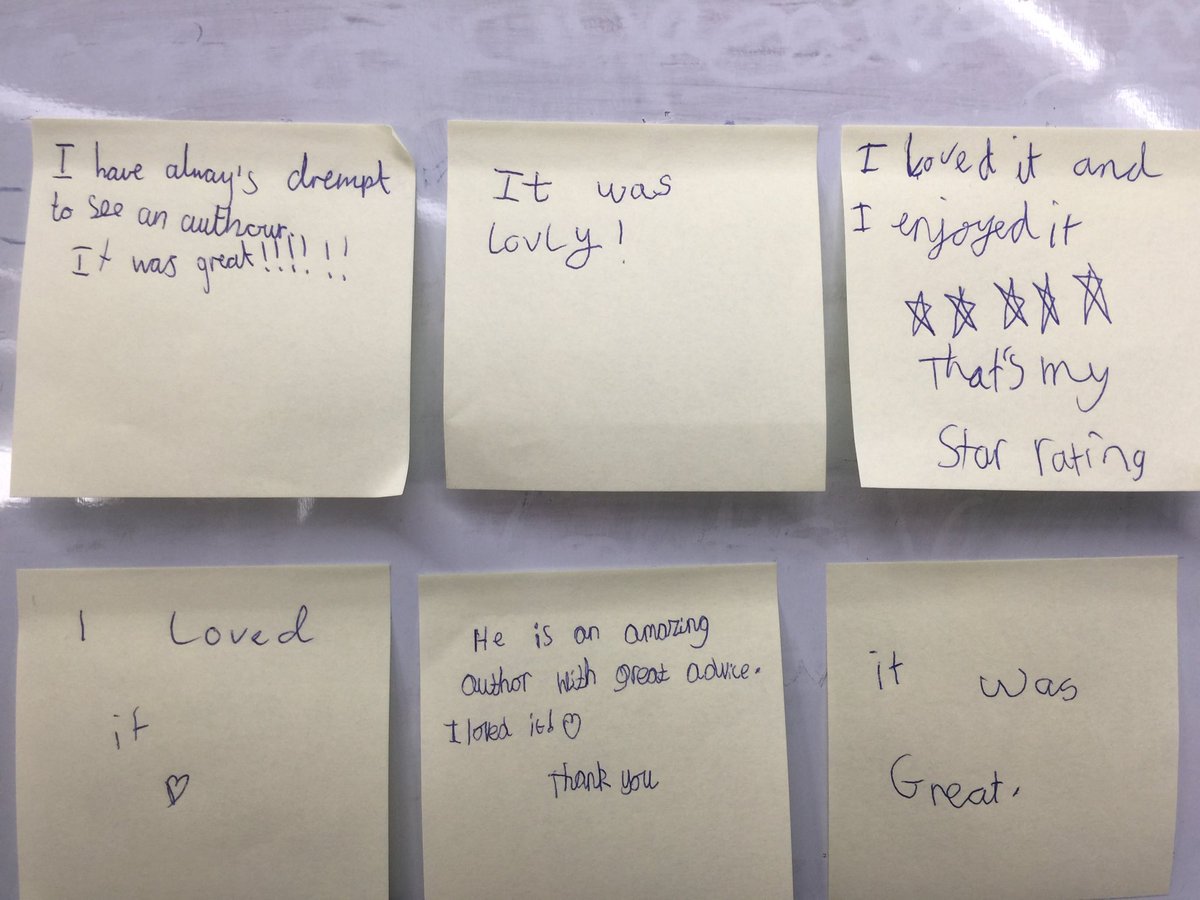 I have alway's drempt
to see an authour.
It was great!!!!!!
It was
lovly!
I loved it and
I enjoyed it
That's my
Star rating
I Loved
it
He is an amazing
author with great advice.
I loved it!
Thank you
it was
Great.